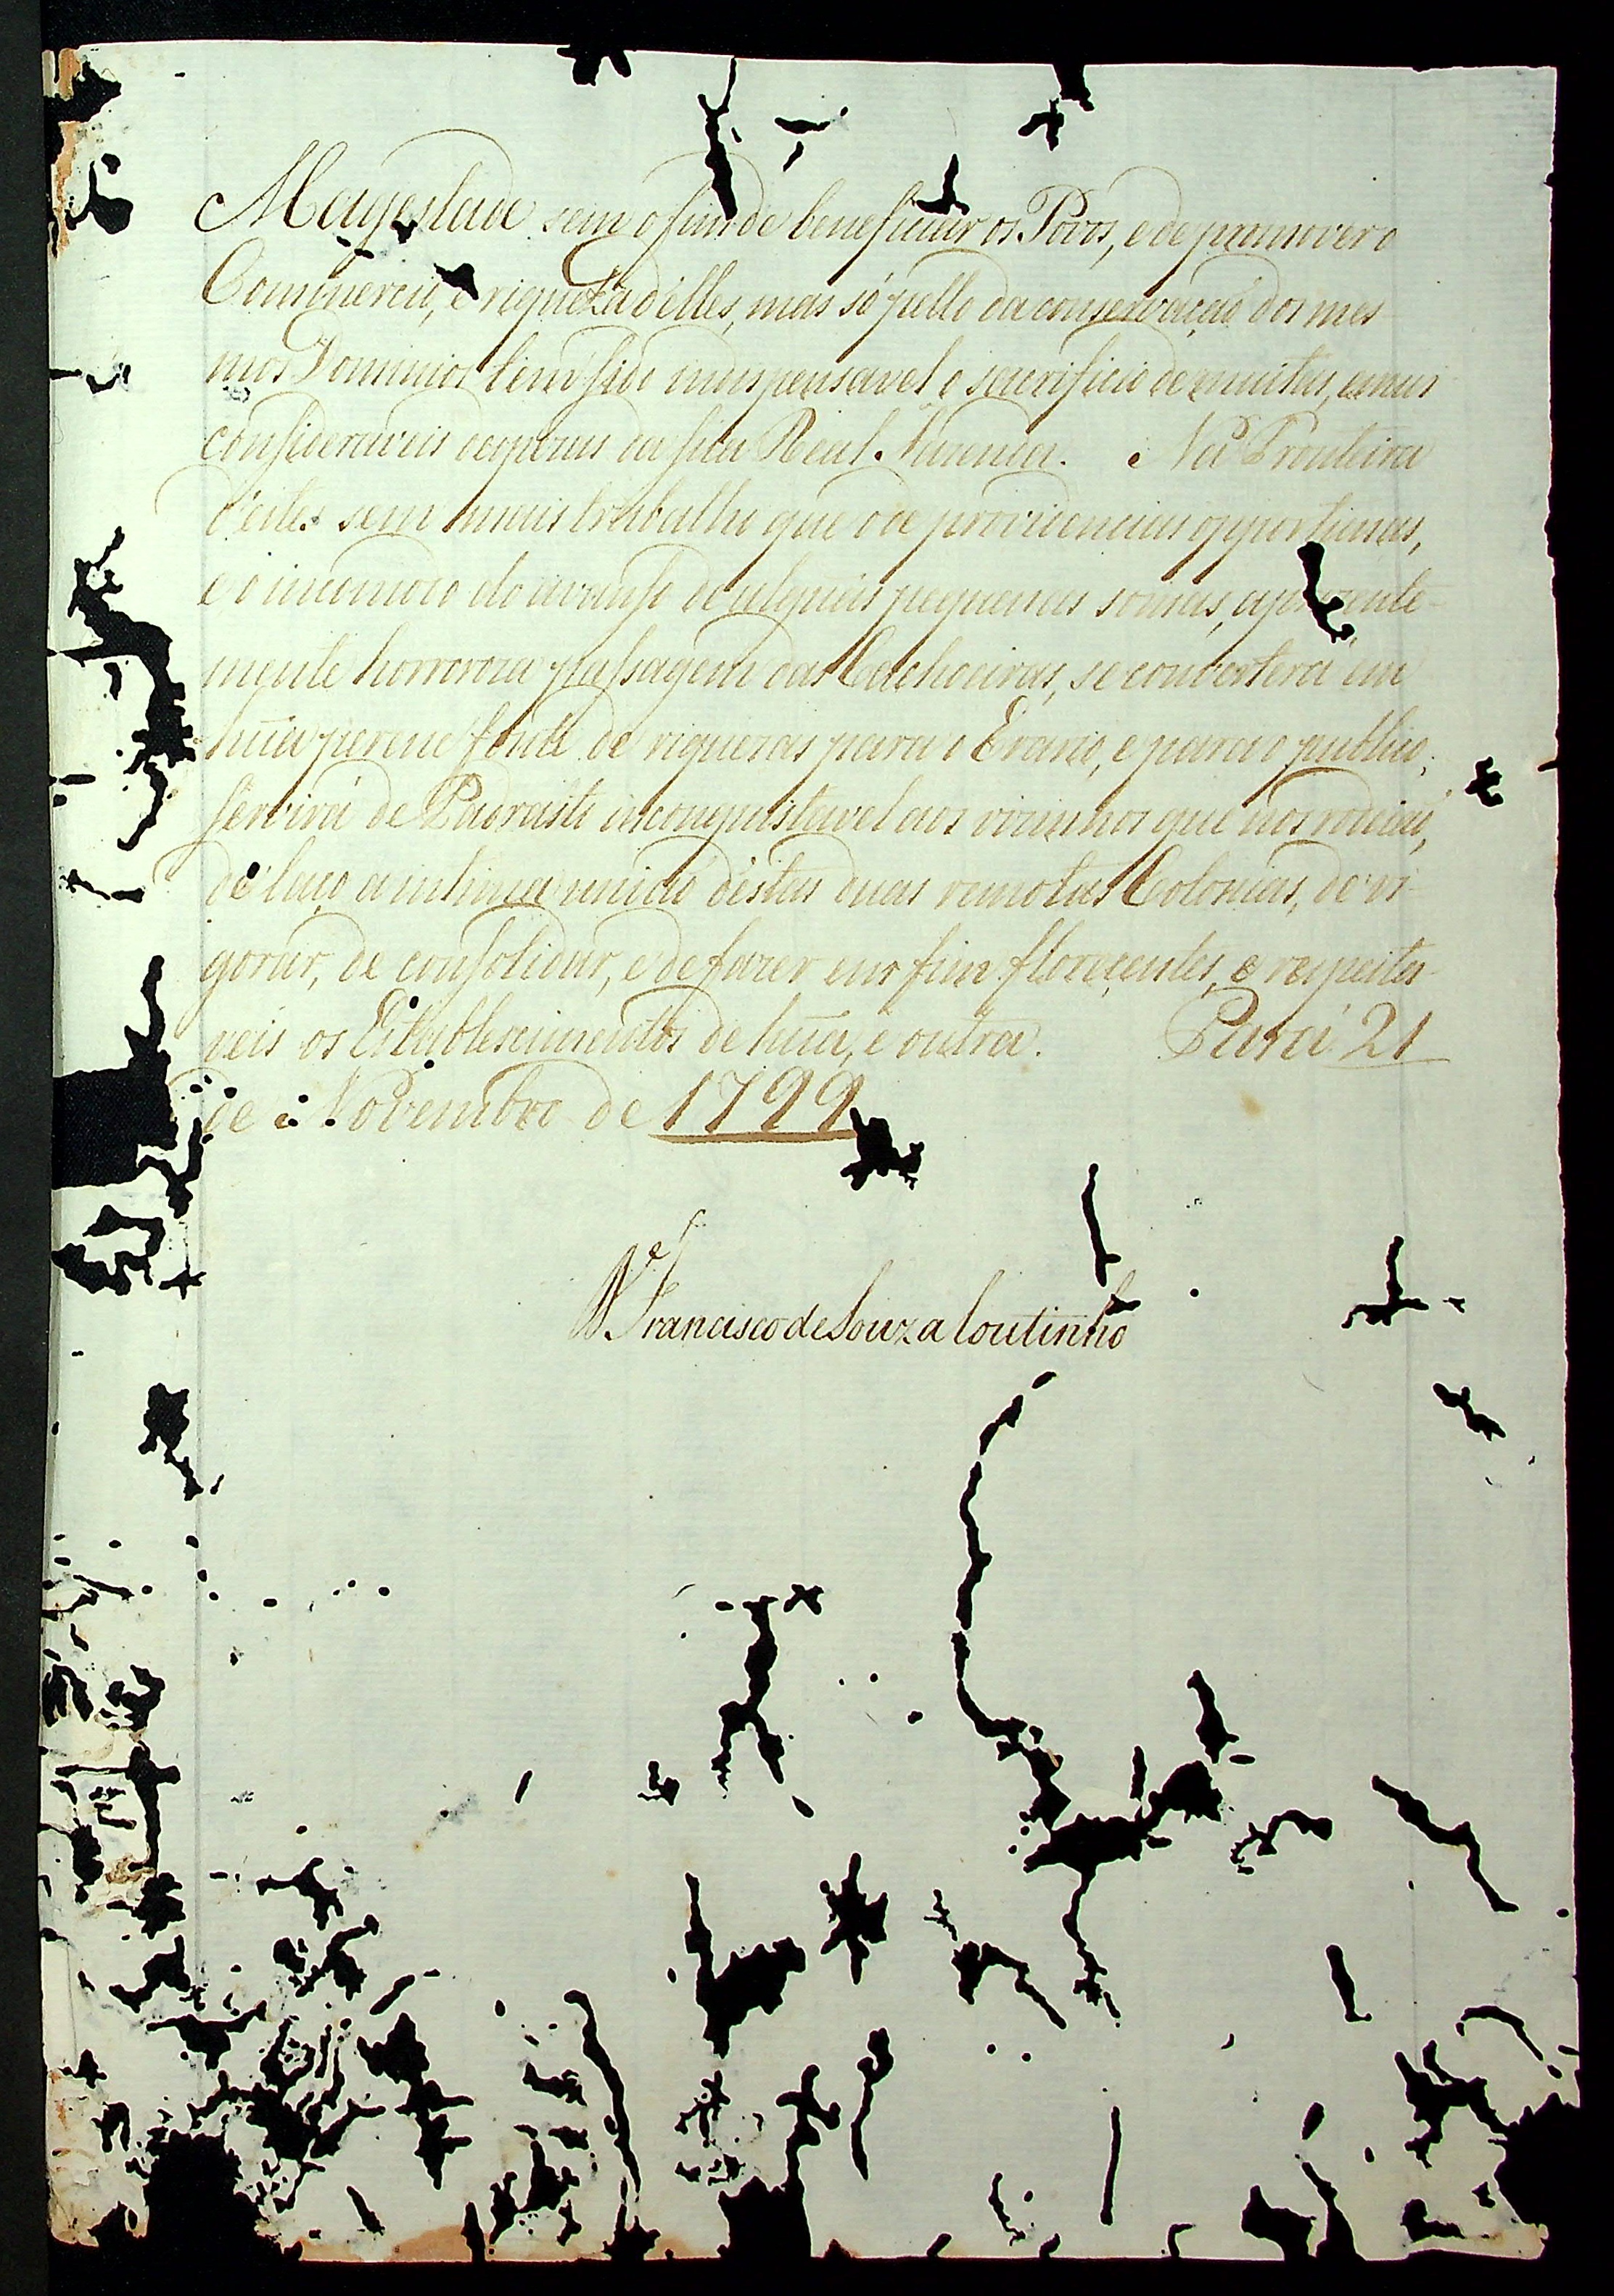 Magestade sem o fim de beneficiar os Povos, e de promover o
Commercio, e riqueza d'elles, mas só pello da conservaçaõ dos mes-
mos Dominios tem sido indispensavel o sacrificio de muitas, e mui
consideraveis despezas da sua Real Fazenda. Na Fronteira
d'estes sem mais trabalho que o de providencias opportunas,
e o incomodo do avanso de algũas pequenas somas, a
mente horroroza passagem das Cachoeiras, se converterá em
hũa perene fonte de riquezas para o Erario, e para o publico,
servirá de Padrasto inconquistavel aos vizinhos que nos rodeiaõ,
de laço a intima uniaõ d'estas duas remotas Colonias, de vi-
gorar, de consolidar, e de fazer em fim floreçentes, e respeita-
veis os Establescimentos de hũa, e outra. Pará 21
de Novembro de 1799
D. Francisco de Souza Coutinho